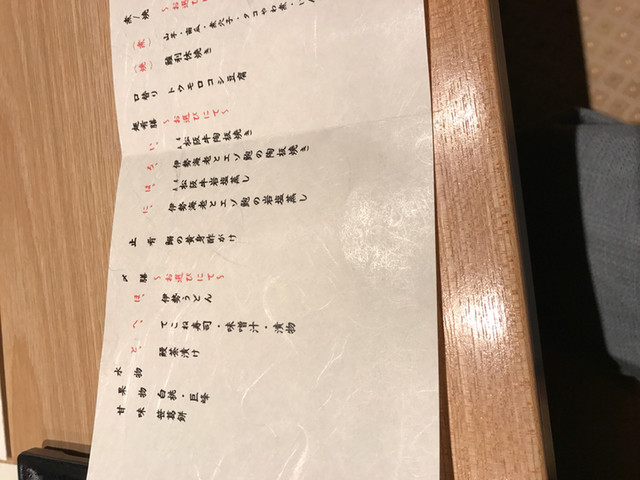 煮/焼 〜お選びに
(煮) 山芋・南瓜・煮穴子・タコやわ煮・
(焼) 利休焼き
口替り トウモロコシ豆腐
趣肴膳 〜お選びにて〜
い、 松阪牛陶板焼き
ろ、 伊勢海老とエゾ鮑の陶板焼き
は、 松阪牛岩塩蒸し
に、 伊勢海老とエゾ鮑の岩塩蒸し
止肴 の黄身酢がけ
〆膳 〜お選びにて〜
ほ、 伊勢うどん
へ、 てこね寿司・味噌汁・漬物
と、 鰻茶漬け
水物
果物 白桃・巨峰
甘味 笹葛餅